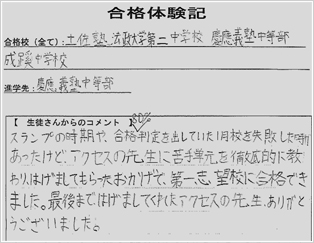 合格体験記
合格校（全て）：土佐塾 法政大学第二中学校 慶應義塾中等部
成蹊中学校
進学先：慶應義塾中等部
【 生徒さんからのコメント 】
スランプの時期や、合格判定を出していた1月校を失敗した時が
あったけど、アクセスの先生に苦手単元を徹底的に教
わり、はげましてもらったおかげで、第一志望校に合格でき
ました。最後まではげましてくれたアクセスの先生、ありがと
うございました。